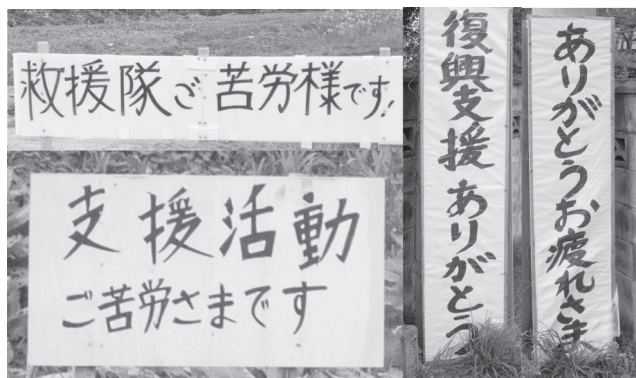 救援隊ご苦労様です!
支援活動
ご苦労さまです
復興支援 ありがとう
ありがとうお疲れさま